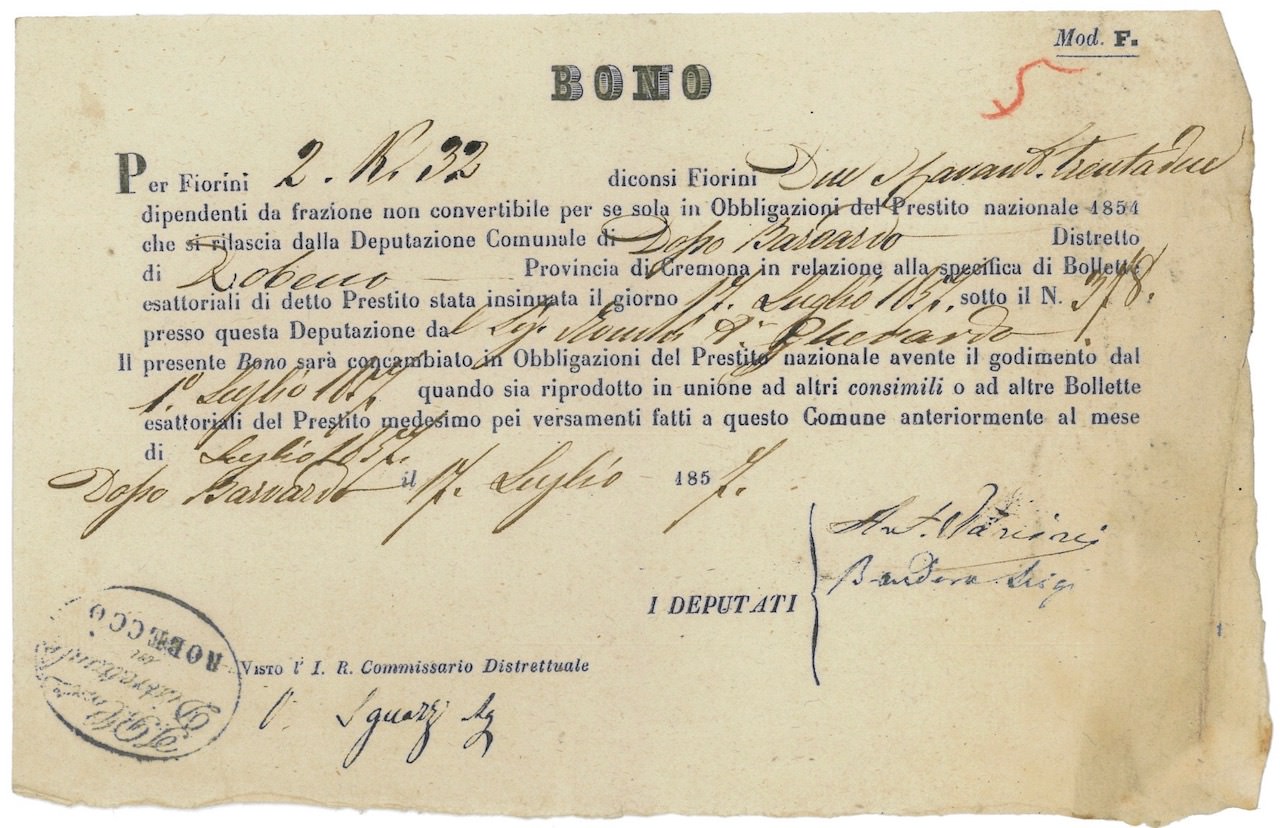 Mod. F.
BONO
Per Fiorini 2. K. 32 diconsi Fiorini Due trentadue
dipendenti da frazione non convertibile per se sola in Obbligazioni del Prestito nazionale 1854
che si rilascia dalla Deputazione Comunale di Dosso Baroardo Distretto
di Robecco Provincia di Cremona in relazione alla specifica di Bollette
esattoriali di detto Prestito stata insinuata il giorno 17. Luglio 1857. sotto il N. 378.
presso questa Deputazione dal Sig.
Il presente Bono sarà concambiato in Obbligazioni del Prestito nazionale avente il godimento dal
1.° Luglio 1857 quando sia riprodotto in unione ad altri consimili o ad altre Bollette
esattoriali del Prestito medesimo pei versamenti fatti a questo Comune anteriormente al mese
di Luglio 1857.
Dosso Baroardo il 17. Luglio 1857.
I DEPUTATI
Visto l' I. R. Commissario Distrettuale
Sguazzi
Distrettuale
in
ROBECCO